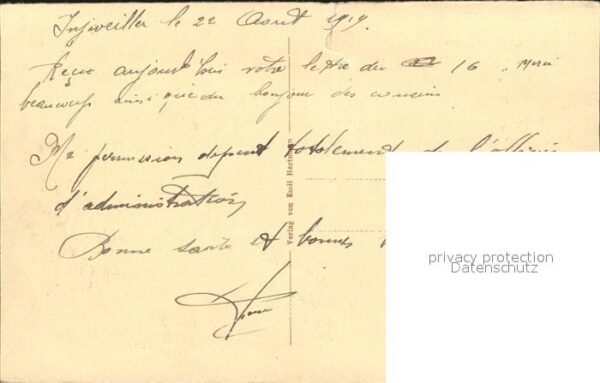 Injviller le 22 Aout 1919
Reçu aujourd'hui votre lettre du 16. Merci
beaucoup ainsi que du bonjour des cousins
Ma permission depent totalement de l'officier
d'administration
Bonne santé et bonnes
Verlag von Emil Hartmann
privacy protection
Datenschutz